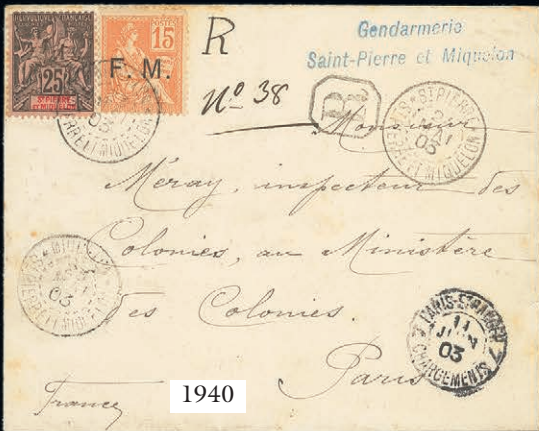 RÉPUBLIQUE FRANÇAISE
25
ST PIERRE
ET MIQUELON
POSTES
15
F. M.
R
Nº 38
Gendarmerie
Saint-Pierre et Miquelon
R
ST PIERRE
MAI
03
ST PIERRE ET MIQUELON
03
ET MIQUELON
Monsieur
Méray, inspecteur des
Colonies, au Ministère
des Colonies.
Paris
France
MIQUELON
03
PARIS-ETRANGER
11
JUIN
03
CHARGEMENTS
1940